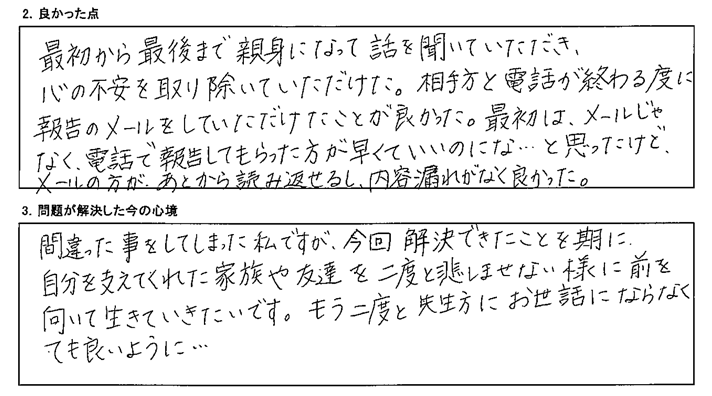 2. 良かった点
最初から最後まで親身になって話を聞いていただき、
心の不安を取り除いていただけた。相手方と電話が終わる度に
報告のメールをしていただけたことが良かった。最初は、メールじゃ
なく、電話で報告してもらった方が早くていいのにな…と思ったけど、
メールの方が、あとから読み返せるし、内容漏れがなく良かった。
3. 問題が解決した今の心境
間違った事をしてしまった私ですが、今回解決できたことを期に、
自分を支えてくれた家族や友達を二度と悲しませない様に前を
向いて生きていきたいです。もう二度と先生方にお世話にならなく
ても良いように…